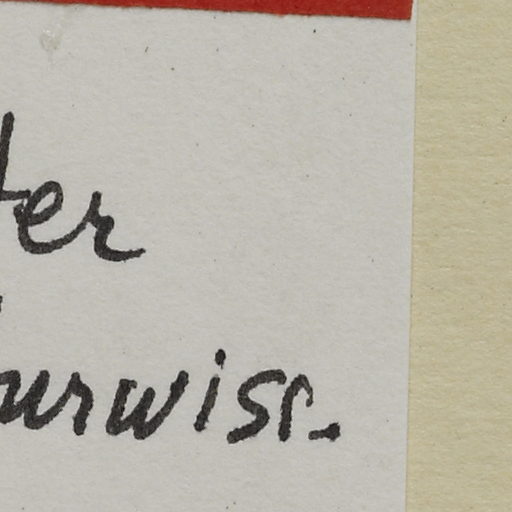 ter
urwiss.